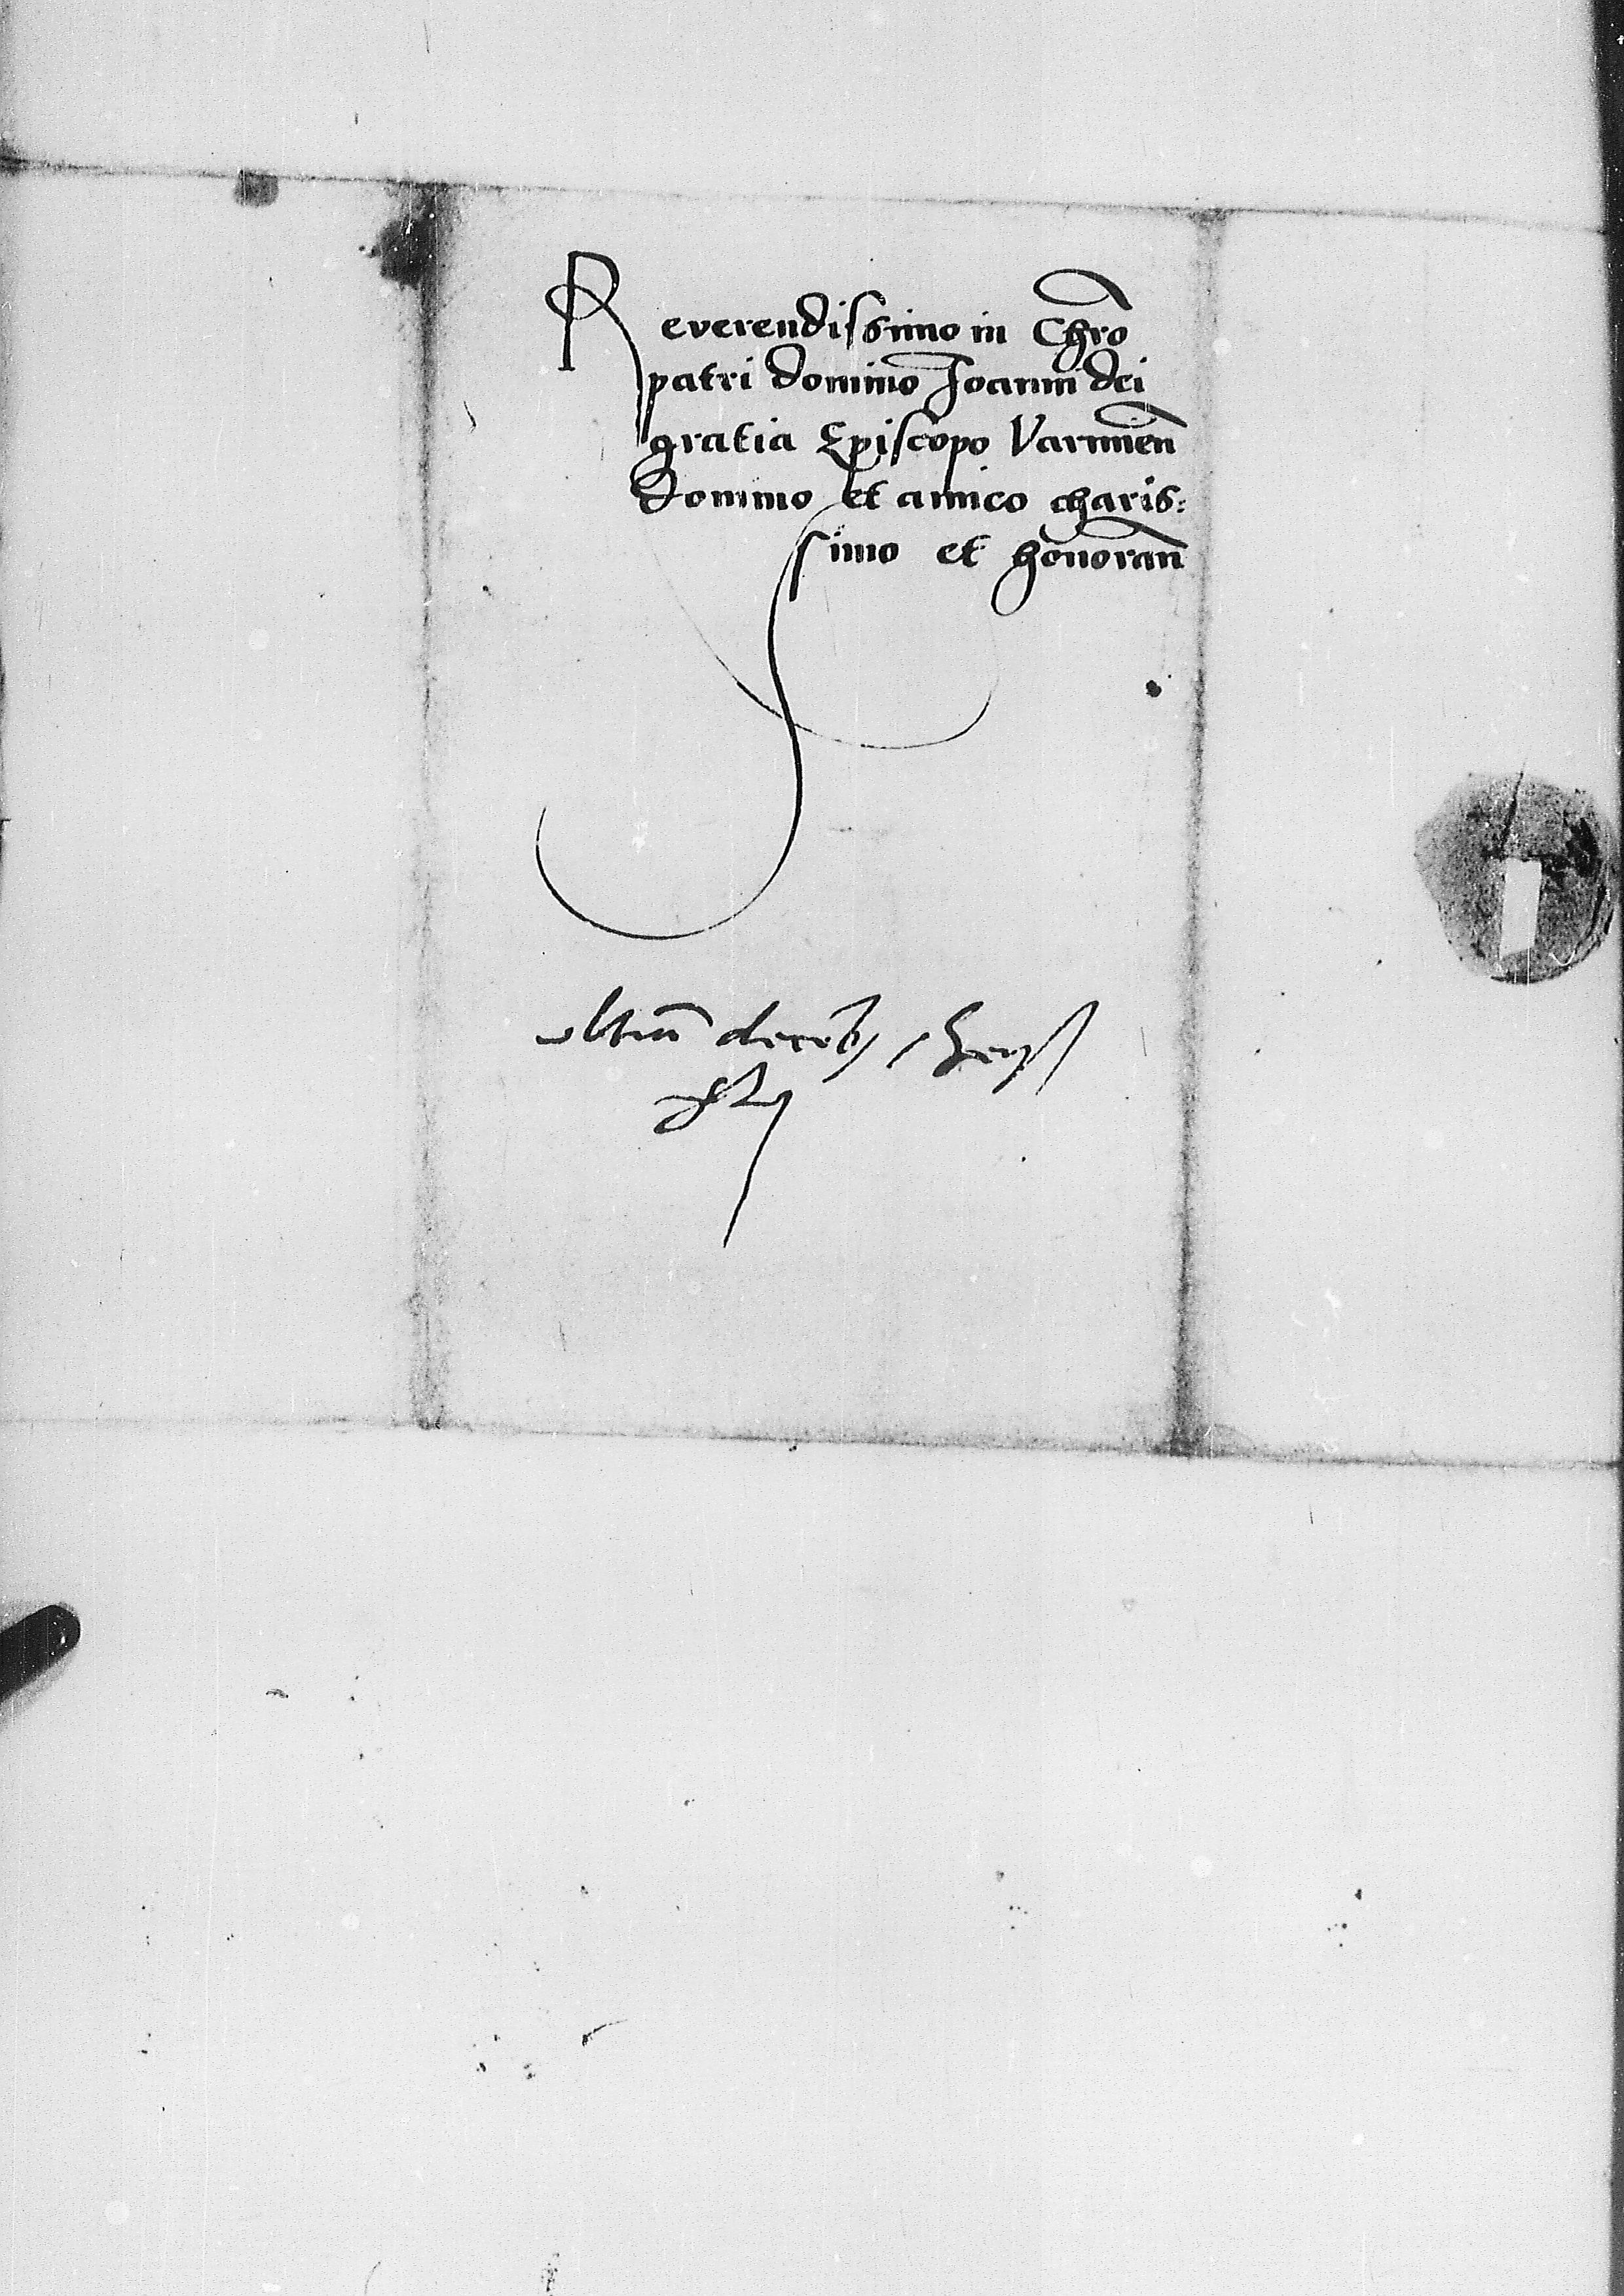 Reverendissimo in Chr̄o
patri domino Joanni dei
gratia Episcopo Varmien̄
domino et amico charis:
simo et honoran̄